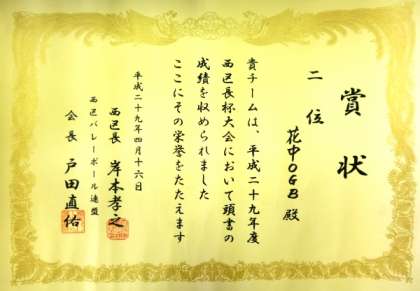 賞状
二位
花中OGB 殿
貴チームは、平成二十九年度
西区長杯大会において頭書の
成績を収められました
ここにその栄誉をたたえます
平成二十九年四月十六日
西区長 岸本孝之
西区バレーボール連盟
会長 戸田直佑